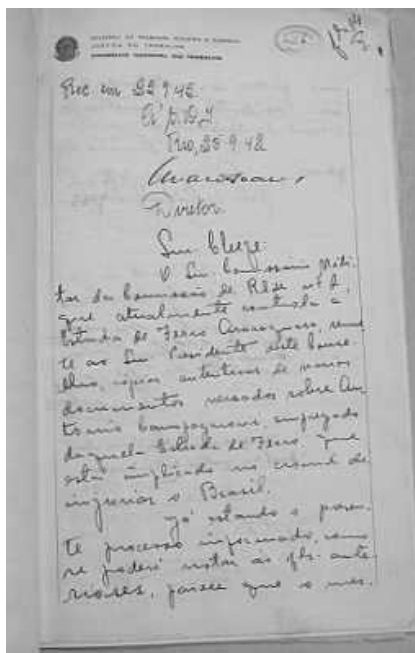 MINISTERIO DO TRABALHO, INDUSTRIA E COMERCIO
JUSTIÇA DO TRABALHO
CONSELHO NACIONAL DO TRABALHO
Rec. em 22 9 42
Rio, 25 9 42
Diretor
Snr. Chefe
O Snr. Comissario Mili-
tar da Comissão de Rêde nº 4,
que atualmente controla a
Estrada de Ferro Araraquara, reme
te ao Snr. Presidente este Conse
lho, copias autenticas de varios
documentos versados sobre An
tonio, empregado
daquela Estrada de Ferro, que
está implicado no crime de
injuriar o Brasil.
Já estando o presen
te processo informado, como
se poderá notar ás fls. ante
riores, parece que o mes.